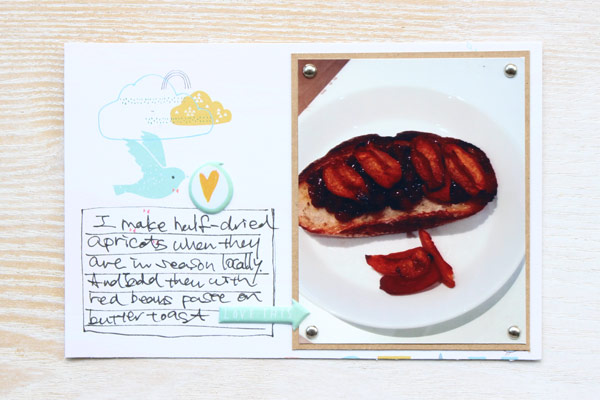 I make half-dried
apricots when they
are in season locally.
And add them with
red beans paste on
butter toast
LOVE THIS